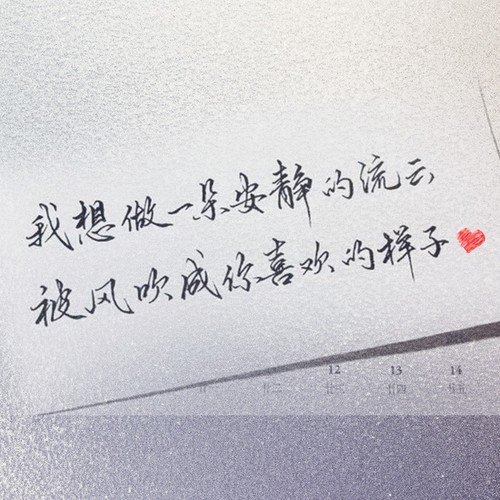 我想做一朵安静的流云
被风吹成你喜欢的样子
12 13 14
廿二 廿三 廿四 廿五